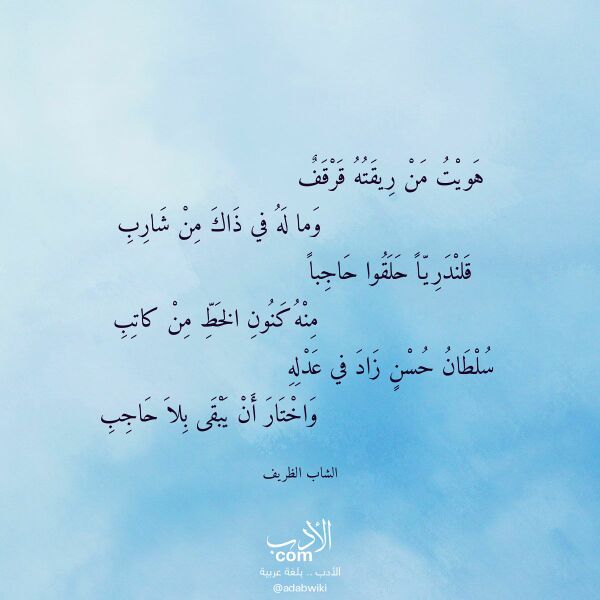 هَويْتُ مَنْ رِيقَتُهُ قَرْقَفٌ
وَما لَهُ في ذَاكَ مِنْ شَارِبِ
قَلَنْدَرِيّاً حَلَقُوا حَاجِباً
مِنْهُ كَنُونِ الخَطِّ مِنْ كاتِبِ
سُلْطَانُ حُسْنٍ زَادَ في عَدْلِهِ
وَاخْتَارَ أَنْ يَبْقَى بِلاَ حَاجِبِ
الشاب الظريف
الأدب
com
الأدب .. بلغة عربية
@adabwiki